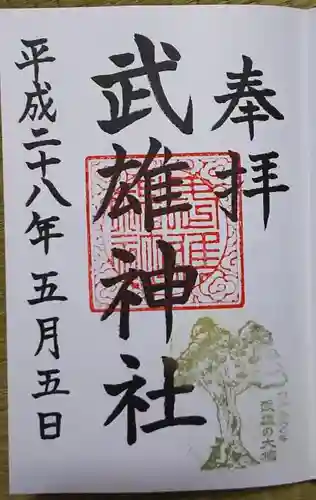 奉拝
武雄神社
平成二十八年五月五日
武雄の大楠